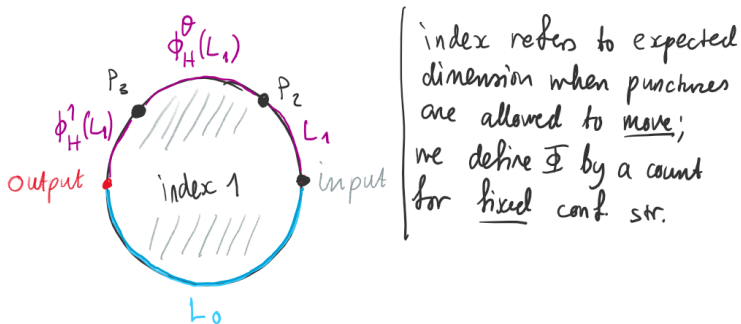 ϕ_H^θ(L_1)
P_3
P_2
ϕ_H^1(L_1)
L_1
output
index 1
input
L_0
index refers to expected
dimension when punctures
are allowed to move;
we define Φ by a count
for fixed conf. str.